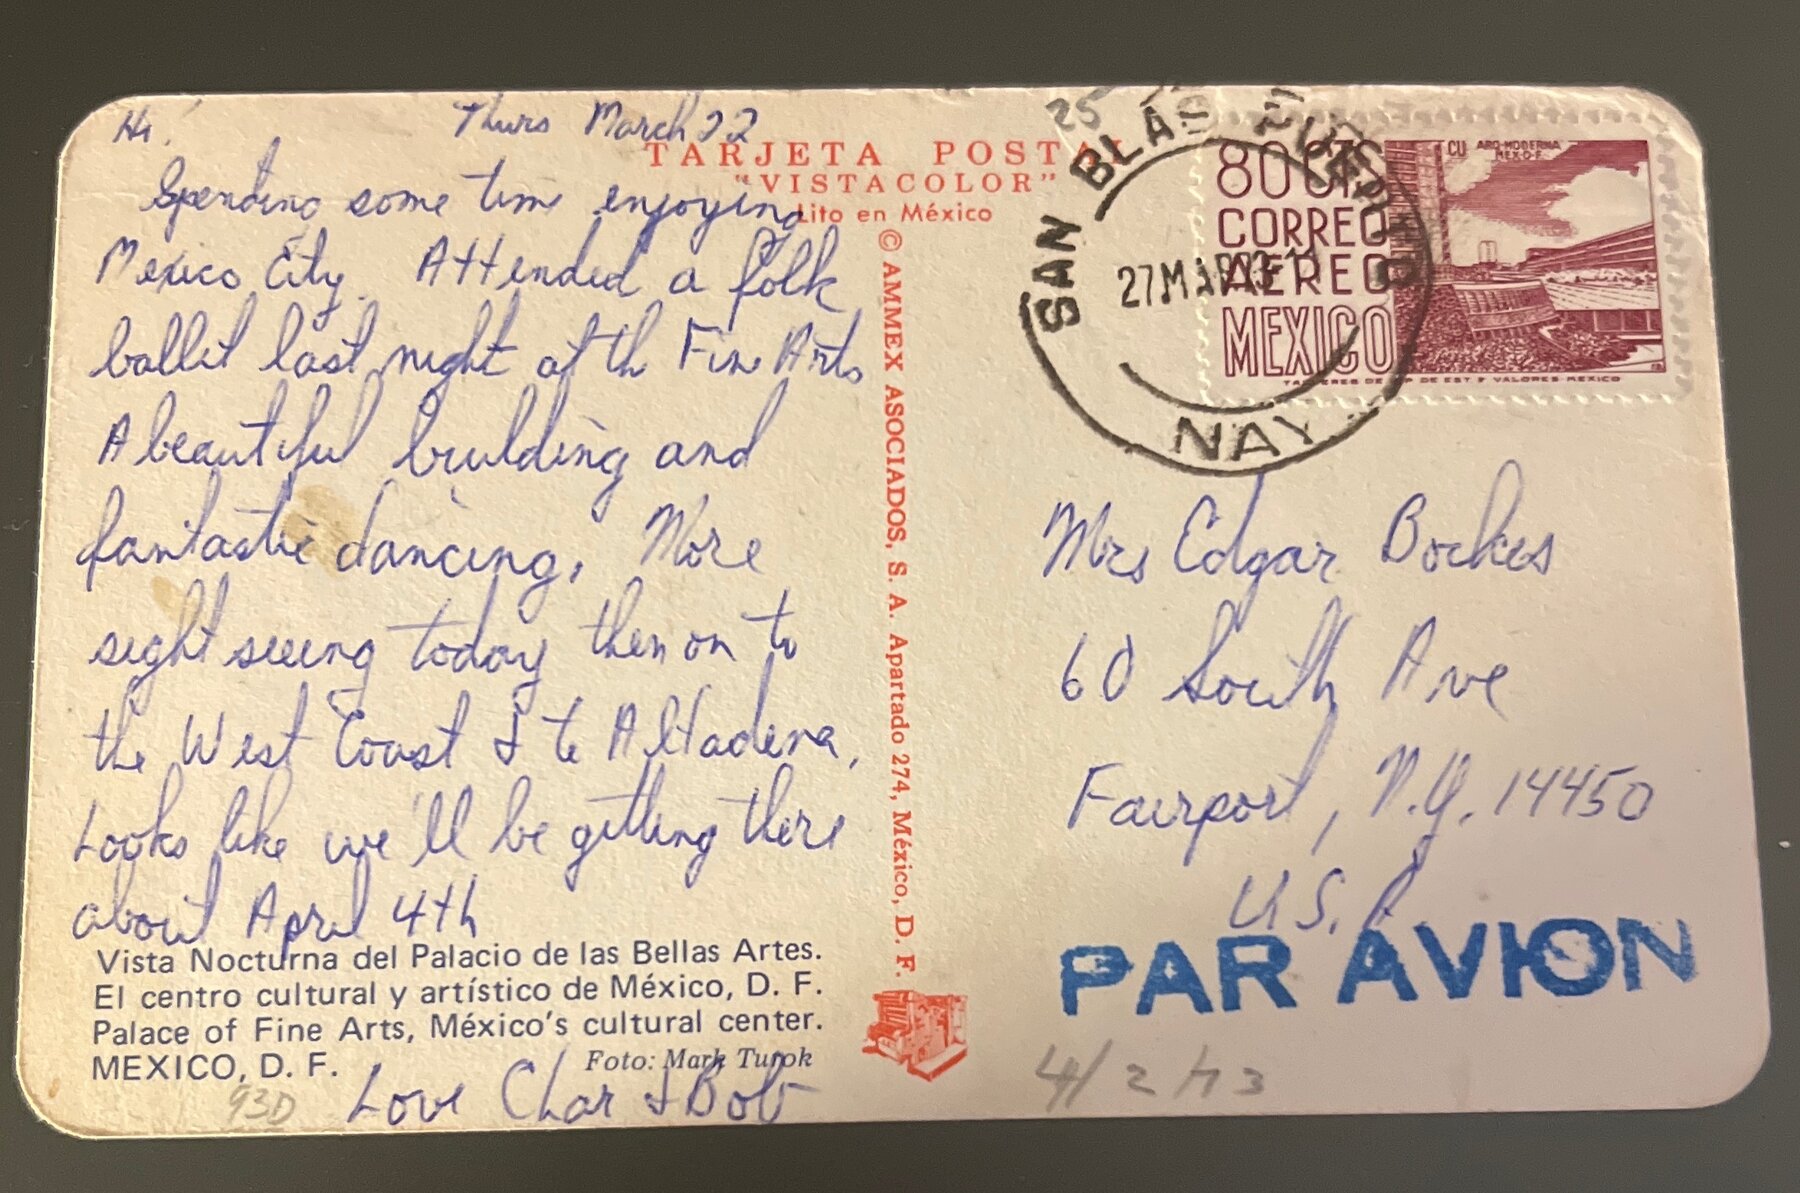 Hi! Thurs March 22
Spending some time enjoying
Mexico City. Attended a folk
ballet last night at the Fine Arts
A beautiful building and
fantastic dancing. More
sight seeing today then on to
the West Coast & to Altadena,
Looks like we'll be getting there
about April 4th
Love Char & Bob
Vista Nocturna del Palacio de las Bellas Artes.
El centro cultural y artístico de México, D. F.
Palace of Fine Arts, México's cultural center.
MEXICO, D. F.
Foto: Mark Turok
93D
TARJETA POSTAL
"VISTACOLOR"
Lito en México
© AMMEX ASOCIADOS, S. A. Apartado 274, México, D. F.
25
SAN BLAS
27 MAR 73
NAY
80 CTS
CORREO
AEREO
MEXICO
CU ARQ-MODERNA
MEX-D-F
TALLERES DE IMP DE EST Y VALORES-MEXICO
Mrs Edgar Bockes
60 South Ave
Fairport, N.Y. 14450
U.S.A
PAR AVION
4/2/73